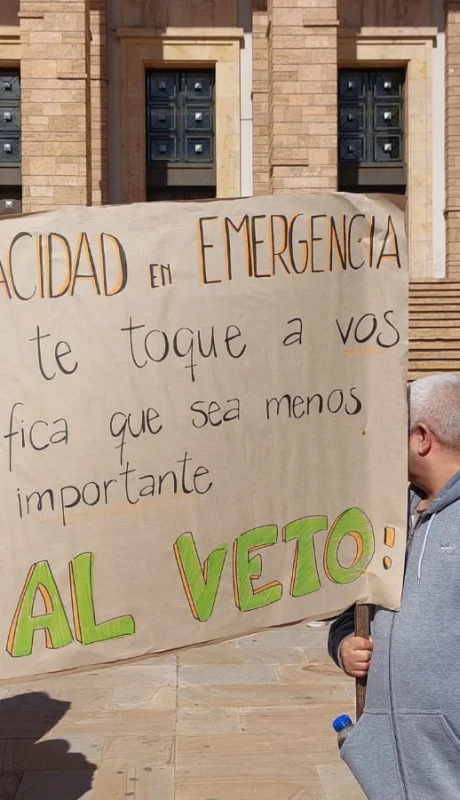 ACIDAD EN EMERGENCIA
te toque a vos
fica que sea menos
importante
AL VETO!